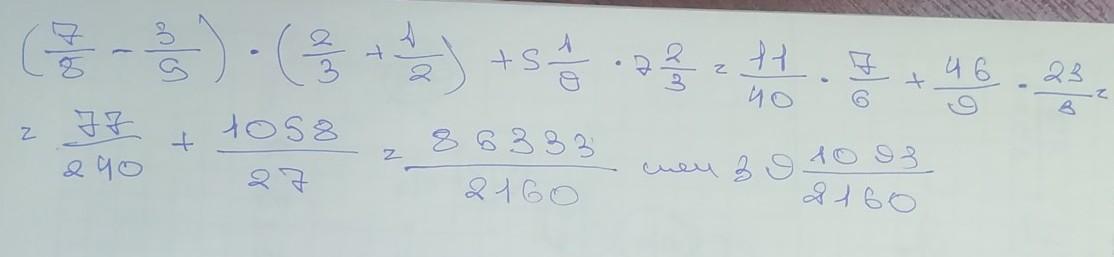 (7/8 - 3/5) · (2/3 + 1/2) + 5 1/9 · 7 2/3 = 11/40 · 7/6 + 46/9 · 23/3 =
= 77/240 + 1058/27 = 86333/2160 или 39 1093/2160